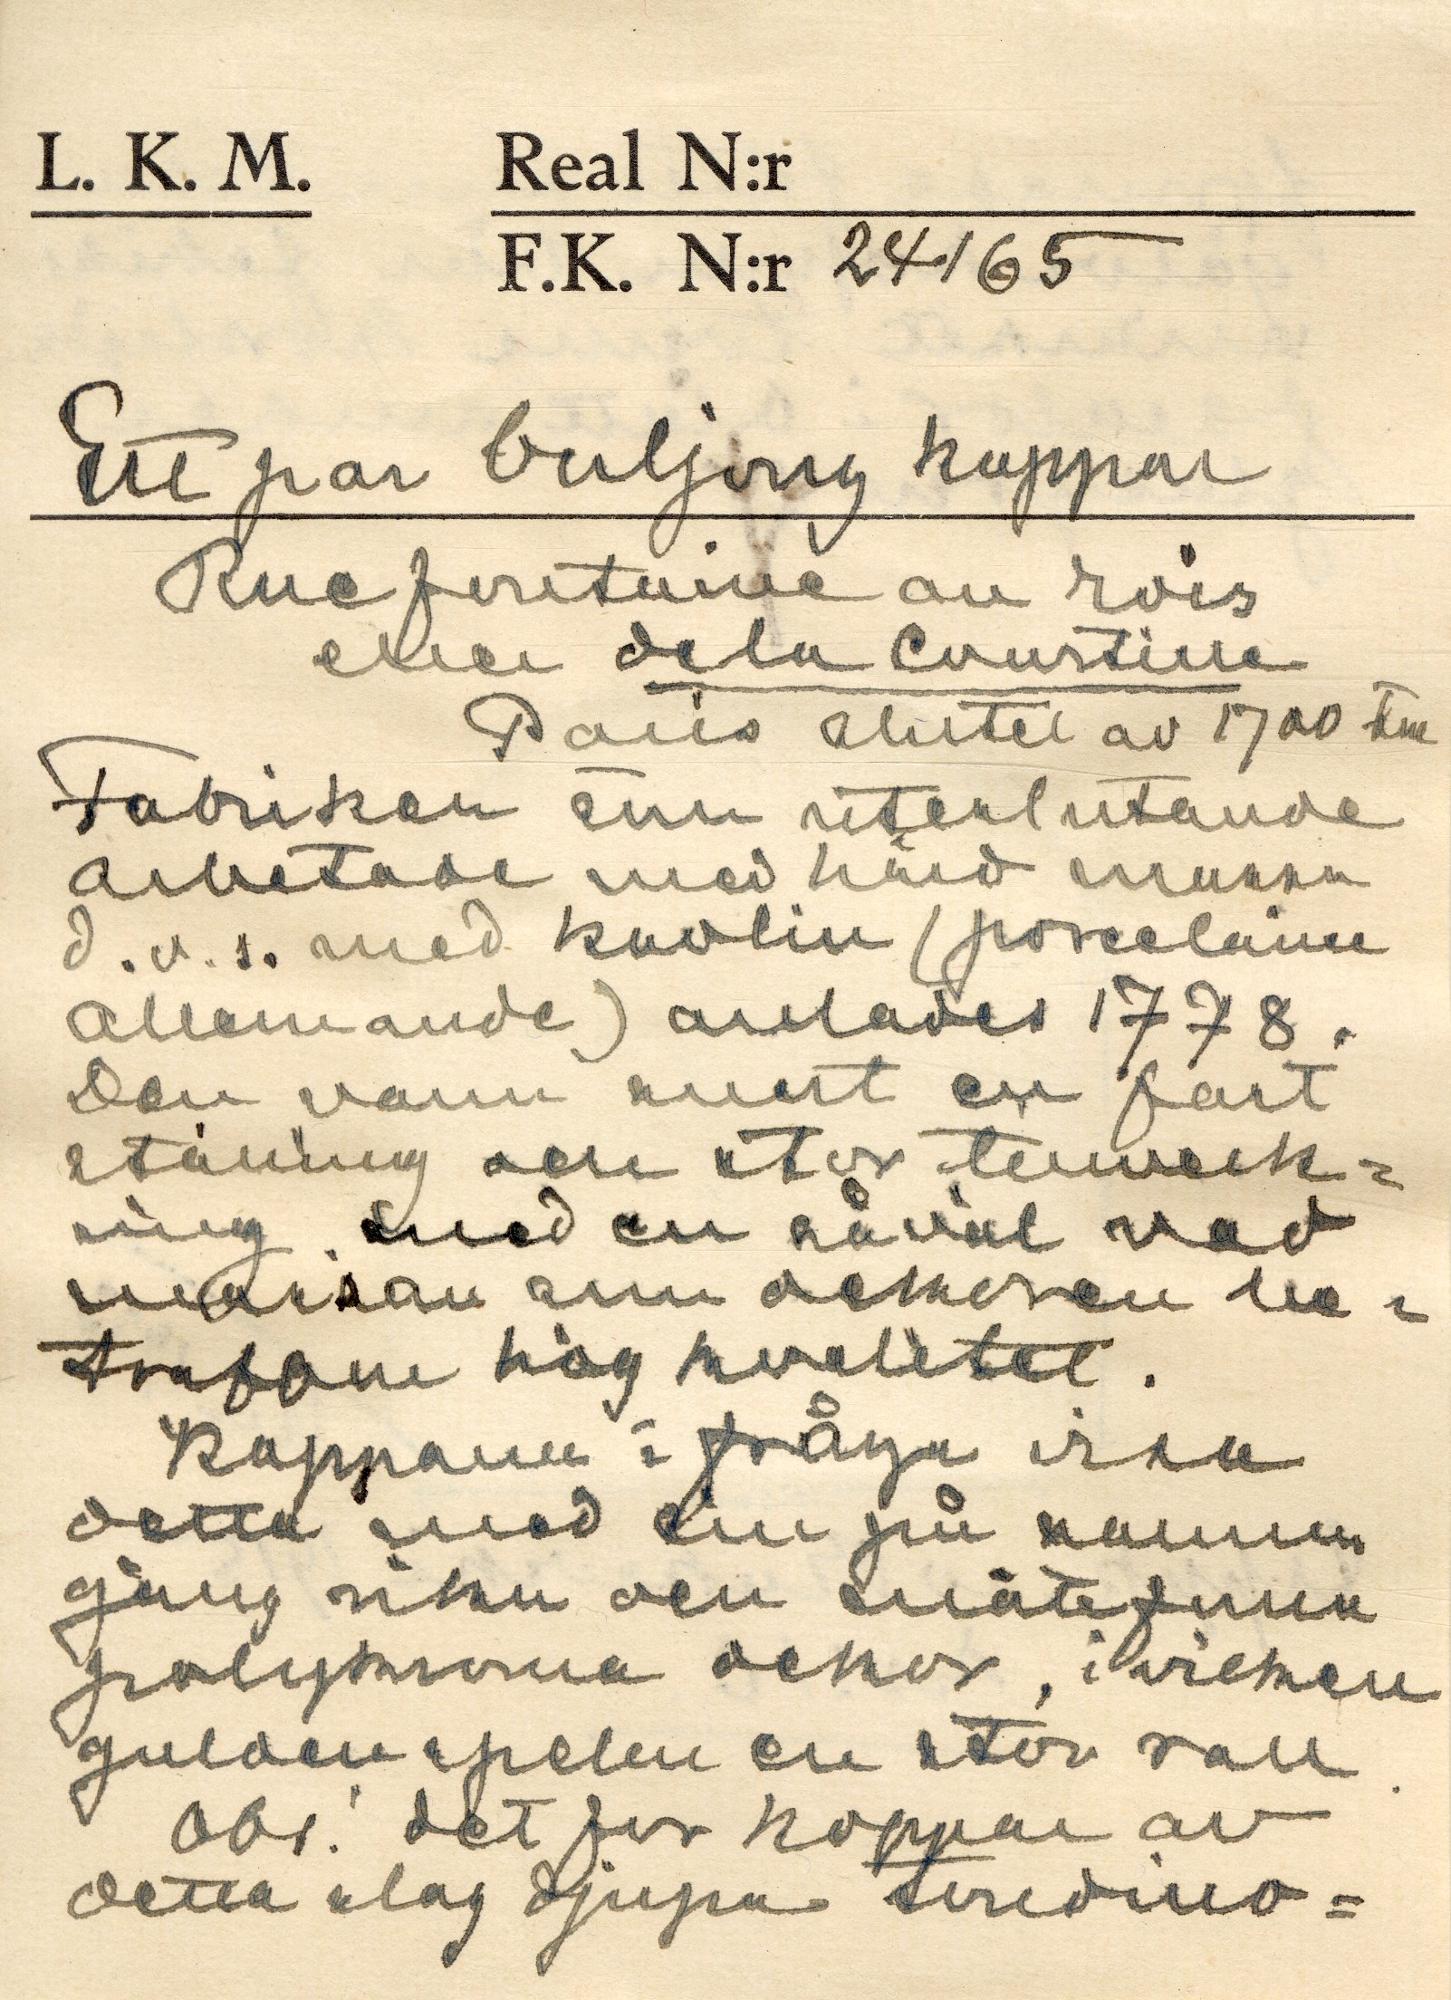 L. K. M. Real N:r
F.K. N:r 24165
Ett par buljong koppar
Rue fontaine au rois
eller de la Courtille
Paris slutet av 1700 t
Fabriken som uteslutande
arbetade med hård massa
d.v.s. med kaolin (porcelaine
allemande) anlades 1778.
Den vann snart en fast
ställning och stor
med en såväl vad
massan som dekoren be-
träffar hög kvalitet.
Kopparna i fråga visa
detta med sin på samma
gång rika och måttfulla
polykroma dekor, i vilken
gulden spelar en stor roll
Obs! det för koppar av
detta slag djupa